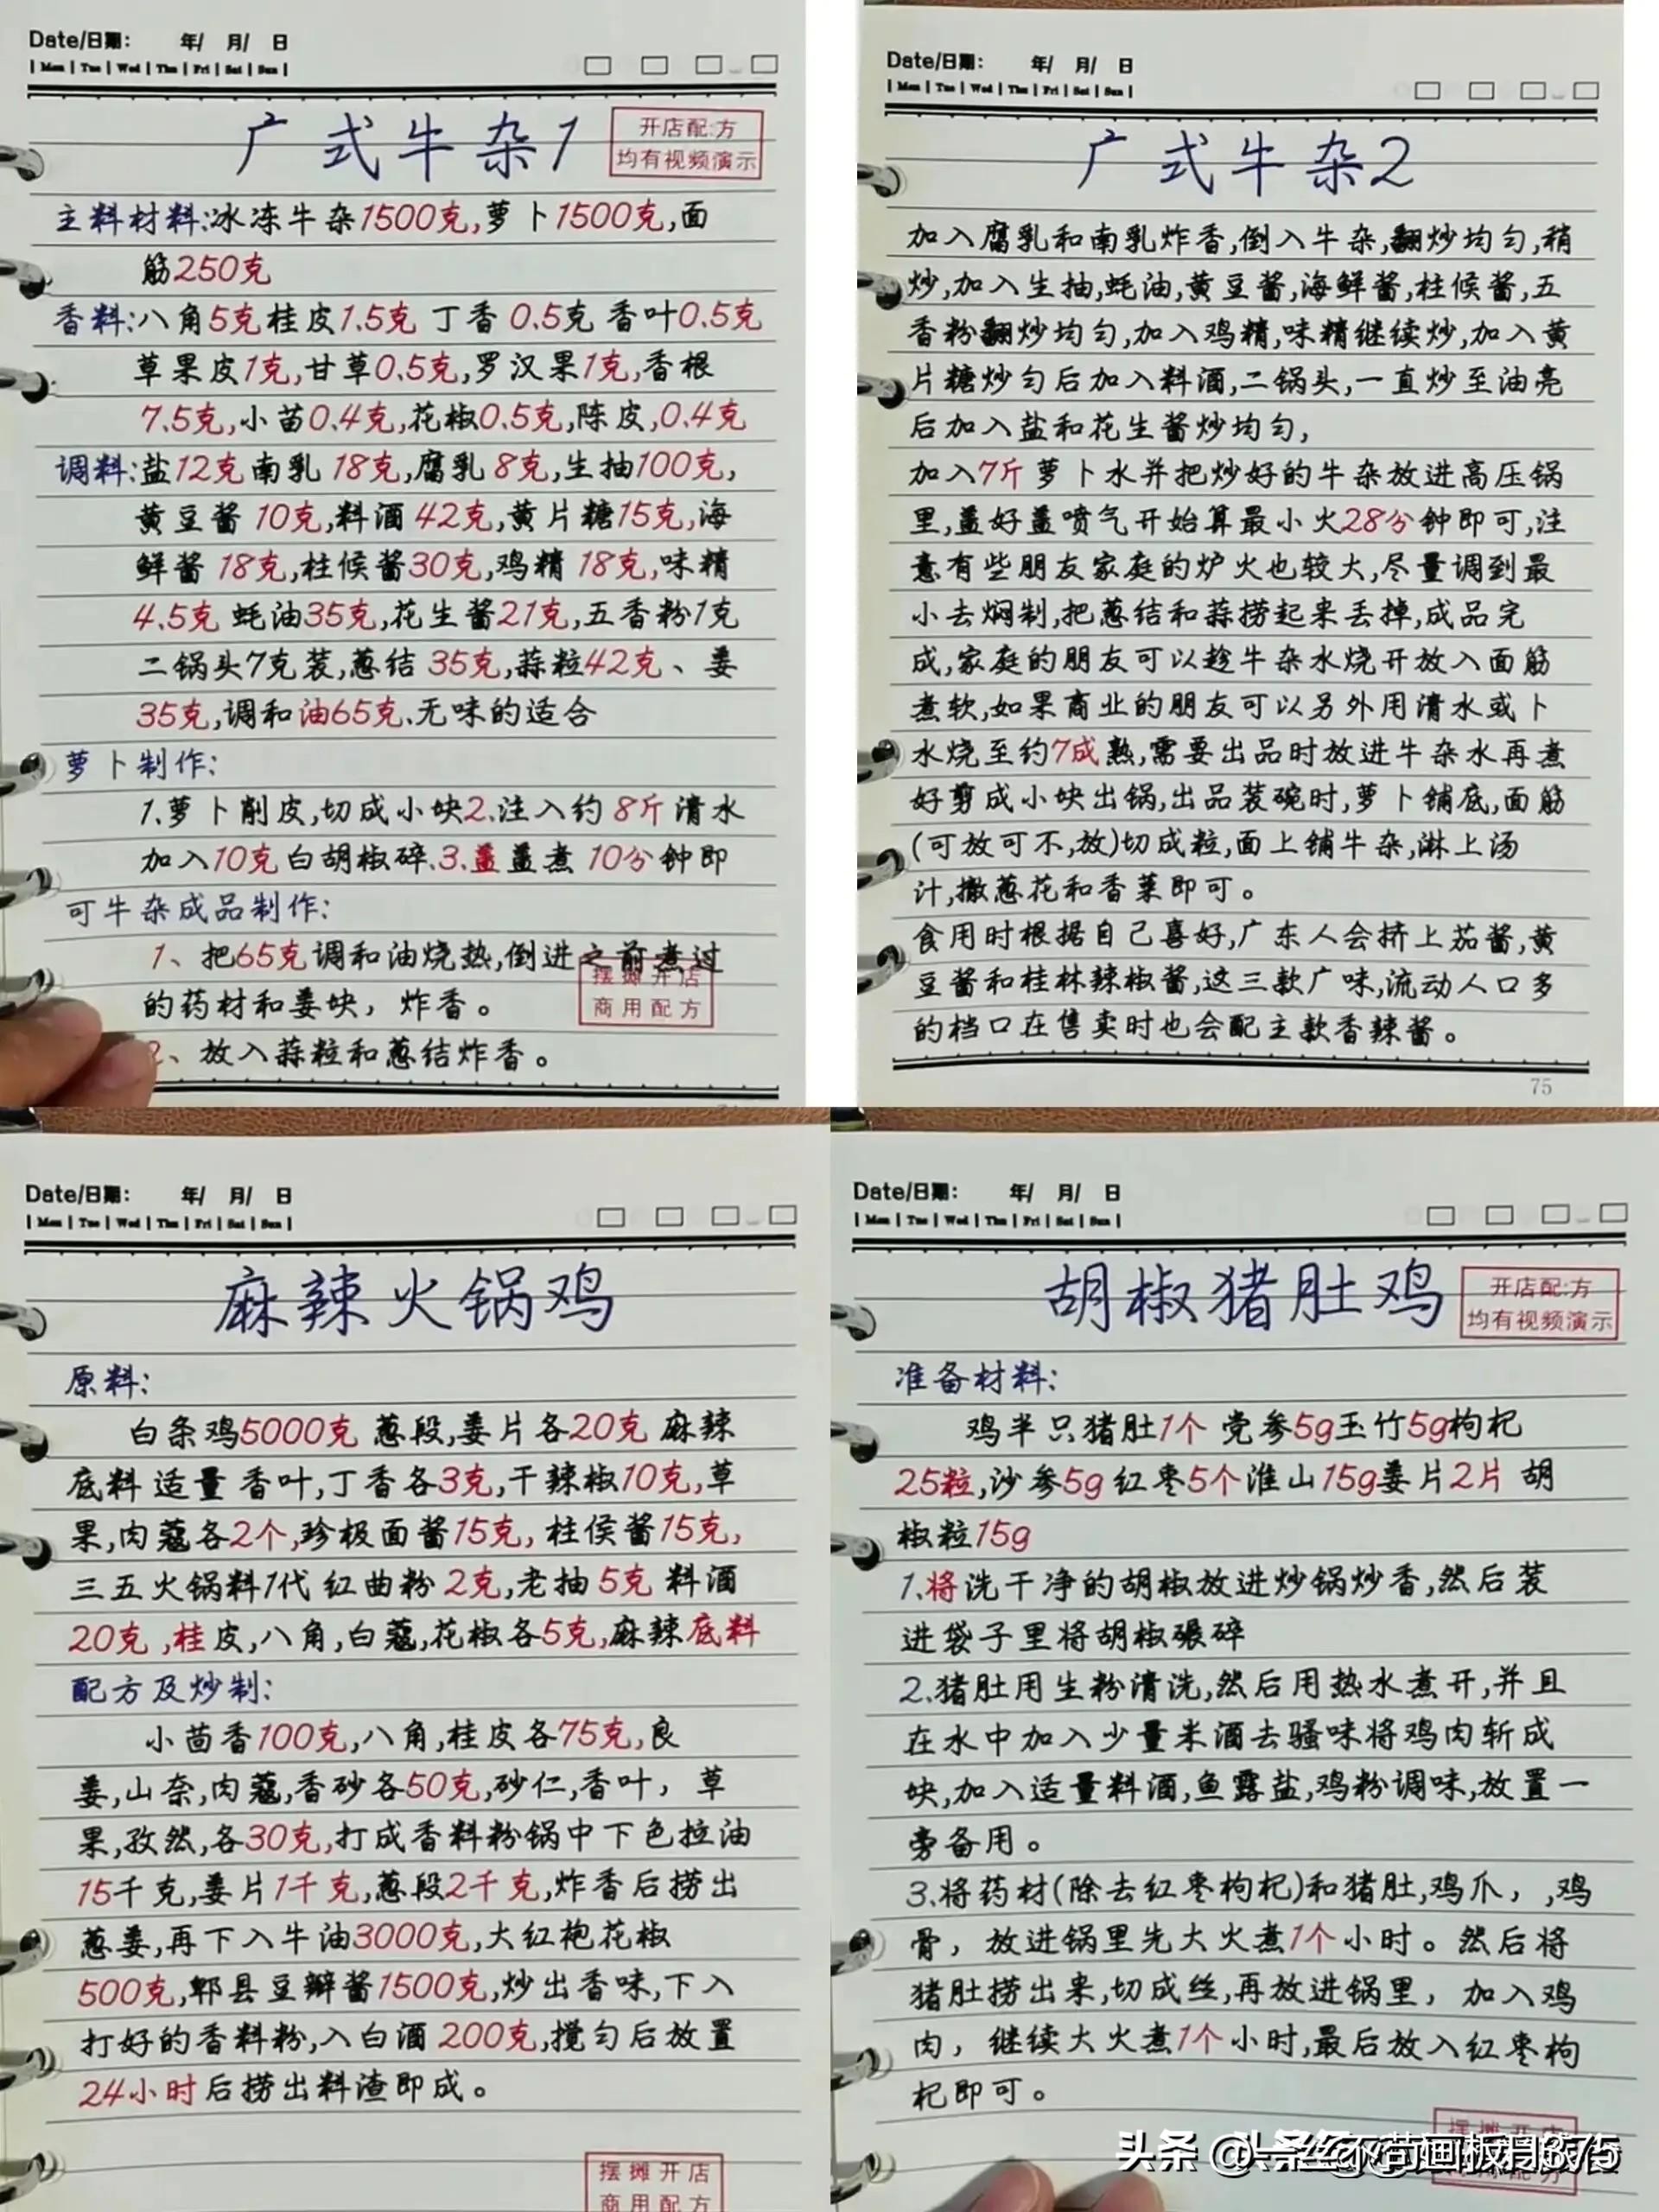 Date/日期: 年/ 月/ 日
| Mon | Tue | Wed | Thu | Fri | Sat | Sun |
广式牛杂1
开店配:方
均有视频演示
主料材料:冰冻牛杂1500克,萝卜1500克,面
筋250克
香料:八角5克桂皮1.5克 丁香 0.5克 香叶0.5克
草果皮1克,甘草0.5克,罗汉果1克,香根
7.5克,小苗0.4克,花椒0.5克,陈皮,0.4克
调料:盐12克南乳 18克,腐乳 8克,生抽100克,
黄豆酱 10克,料酒 42克,黄片糖15克,海
鲜酱 18克,柱候酱30克,鸡精 18克,味精
4.5克 蚝油35克,花生酱21克,五香粉1克
二锅头7克装,葱结 35克,蒜粒42克、姜
35克,调和油65克、无味的适合
萝卜制作:
1.萝卜削皮,切成小块2.注入约 8斤 清水
加入10克白胡椒碎.3.盖盖煮 10分钟即
可牛杂成品制作:
1、把65克调和油烧热,倒进之前煮过
的药材和姜块，炸香。
2、放入蒜粒和葱结炸香。
摆摊开店
商用配方
Date/日期: 年/ 月/ 日
| Mon | Tue | Wed | Thu | Fri | Sat | Sun |
广式牛杂2
加入腐乳和南乳炸香,倒入牛杂,翻炒均匀,稍
炒,加入生抽,蚝油,黄豆酱,海鲜酱,柱候酱,五
香粉翻炒均匀,加入鸡精,味精继续炒,加入黄
片糖炒匀后加入料酒,二锅头,一直炒至油亮
后加入盐和花生酱炒均匀,
加入7斤萝卜水并把炒好的牛杂放进高压锅
里,盖好盖喷气开始算最小火28分钟即可,注
意有些朋友家庭的炉火也较大,尽量调到最
小去焖制,把葱结和蒜捞起来丢掉,成品完
成,家庭的朋友可以趁牛杂水烧开放入面筋
煮软,如果商业的朋友可以另外用清水或卜
水烧至约7成熟,需要出品时放进牛杂水再煮
好剪成小块出锅,出品装碗时,萝卜铺底,面筋
(可放可不,放)切成粒,面上铺牛杂,淋上汤
汁,撒葱花和香菜即可。
食用时根据自己喜好,广东人会挤上茄酱,黄
豆酱和桂林辣椒酱,这三款广味,流动人口多
的档口在售卖时也会配主款香辣酱。
75
Date/日期: 年/ 月/ 日
| Mon | Tue | Wed | Thu | Fri | Sat | Sun |
麻辣火锅鸡
原料:
白条鸡5000克 葱段,姜片各20克 麻辣
底料 适量 香叶,丁香各3克,干辣椒10克,草
果,肉蔻各2个,珍极面酱15克, 柱侯酱15克,
三五火锅料1代 红曲粉 2克,老抽 5克 料酒
20克 ,桂皮,八角,白蔻,花椒各5克,麻辣底料
配方及炒制:
小茴香100克,八角,桂皮各75克,良
姜,山奈,肉蔻,香砂各50克,砂仁,香叶，草
果,孜然,各30克,打成香料粉锅中下色拉油
15千克,姜片1千克,葱段2千克,炸香后捞出
葱姜,再下入牛油3000克,大红袍花椒
500克,郫县豆瓣酱1500克,炒出香味,下入
打好的香料粉,入白酒 200克,搅匀后放置
24小时后捞出料渣即成。
摆摊开店
商用配方
Date/日期: 年/ 月/ 日
| Mon | Tue | Wed | Thu | Fri | Sat | Sun |
胡椒猪肚鸡
开店配:方
均有视频演示
准备材料:
鸡半只猪肚1个 党参5g玉竹5g枸杞
25粒,沙参5g 红枣5个淮山15g姜片2片 胡
椒粒15g
1.将洗干净的胡椒放进炒锅炒香,然后装
进袋子里将胡椒碾碎
2.猪肚用生粉清洗,然后用热水煮开,并且
在水中加入少量米酒去骚味将鸡肉斩成
块,加入适量料酒,鱼露盐,鸡粉调味,放置一
旁备用。
3.将药材(除去红枣枸杞)和猪肚,鸡爪，,鸡
骨，放进锅里先大火煮1个小时。然后将
猪肚捞出来,切成丝,再放进锅里，加入鸡
肉，继续大火煮1个小时,最后放入红枣枸
杞即可。
摆摊开店
头条